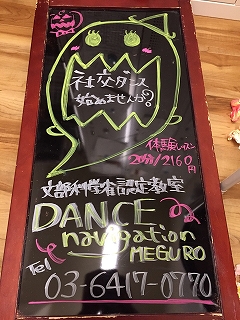 社交ダンス
始めませんか?
体験レッスン
20分/2160円
文部科学省認定教室
DANCE
navigation
MEGURO
Tel
03-6417-0770